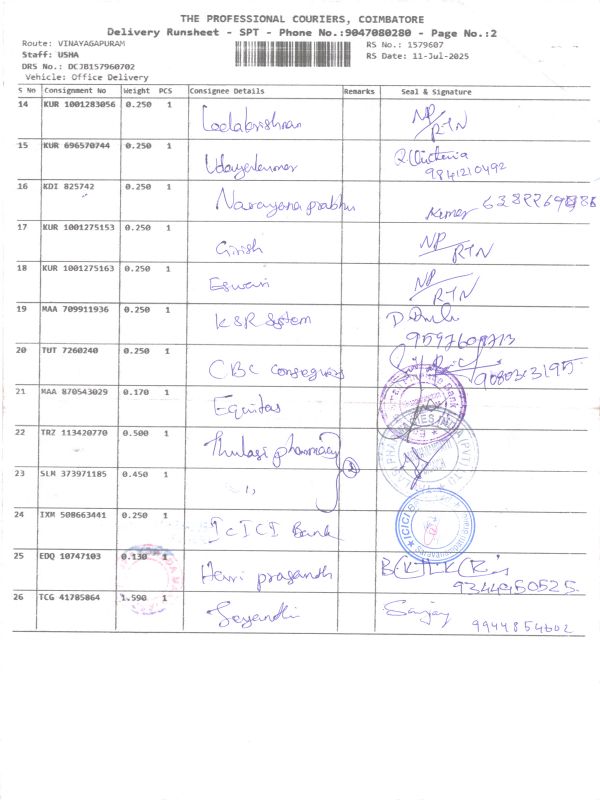 THE PROFESSIONAL COURIERS, COIMBATORE
Delivery Runsheet - SPT - Phone No.:9047080280 - Page No.:2
Route: VINAYAGAPURAM
RS No.: 1579607
Staff: USHA
RS Date: 11-Jul-2025
DRS No.: DCJB157960702
Vehicle: Office Delivery
S No Consignment No Weight PCS Consignee Details Remarks Seal & Signature
14 KUR 1001283056 0.250 1 Leelakrishnan NP/RTN
15 KUR 696570744 0.250 1 Udayakumar
9841210492
16 KDI 825742 0.250 1 Narayana prabhu Kumar
17 KUR 1001275153 0.250 1 Girish NP/RTN
18 KUR 1001275163 0.250 1 Eswari NP/RTN
19 MAA 709911936 0.250 1 KSR System
20 TUT 7260240 0.250 1 CBC
21 MAA 870543029 0.170 1 Equitas
22 TRZ 113420770 0.500 1 Thulasi pharmacy 2
23 SLM 373971185 0.450 1 "
24 IXM 508663441 0.250 1 ICICI Bank
25 EDQ 10747103 0.130 1 Hari prasandh
9344950525
26 TCG 41785864 1.590 1 Sanjay
9944854602